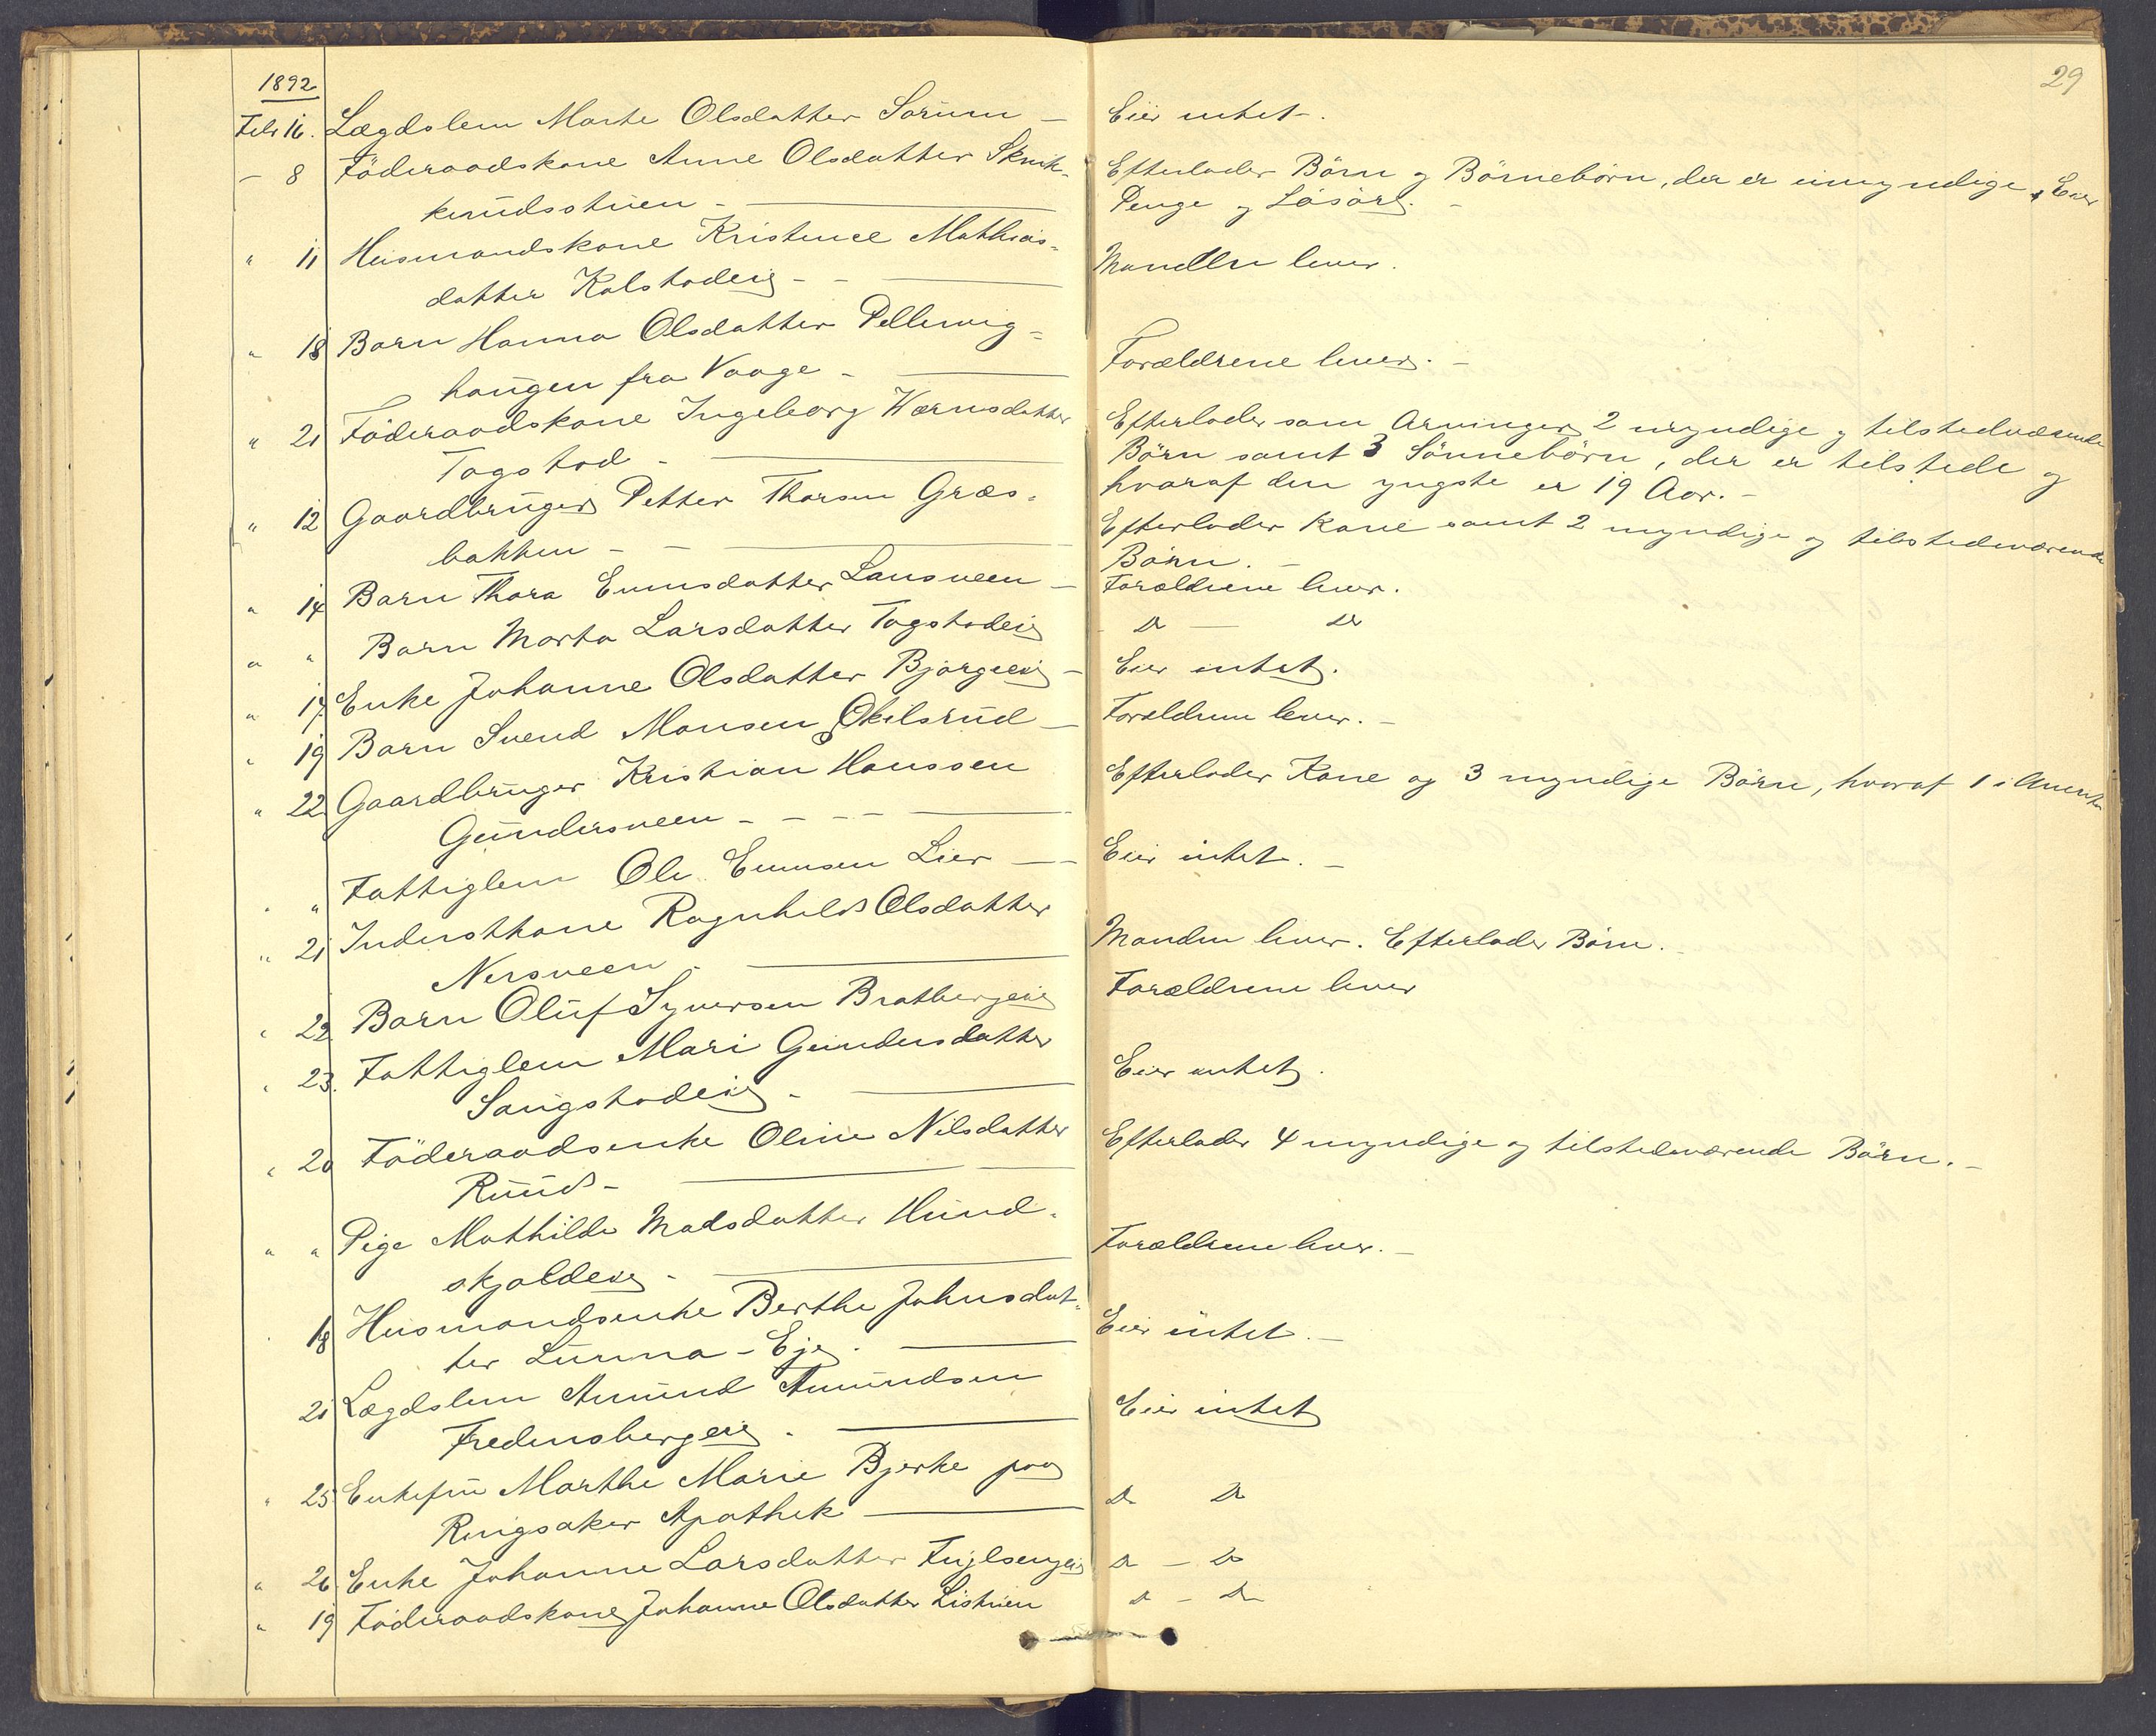 29
1892
Febr 16. Lægdslem Marte Olsdatter Sorum — Eier intet.
— 8 Föderaadskone Anne Olsdatter Skrik- Efterlader Börn og Börnebörn, der er umyndige, Eier
kerudsstuen — Penge og Lösöre. —
" 11 Husmandskone Kristence Mathias- Manden lever.
datter Kolstadeie —
" 18 Barn Hanna Olsdatter Pellervig- Forældrene lever. —
haugen fra Vaage —
" 21 Föderaadskone Ingeborg Hærnsdatter Efterlader som Arvinger 2 myndige og tilstedeværende
Togstad — Börn samt 3 Sönnebörn, der er tilstede og
hvoraf den yngste er 19 Aar. —
" 12 Gaardbruger Petter Thorsen Græs- Efterlader Kone samt 2 myndige og tilstedeværende
bakken — Börn. —
" 14 Barn Thora Evensdatter Lausveen — Forældrene lever.
" " Barn Marta Larsdatter Togstadeie Do — Do
" 17 Enke Johanne Olsdatter Bjørgeeie — Eier intet.
" 19 Barn Svend Monsen Økelsrud — Forældrene lever. —
" 22 Gaardbruger Kristian Hanssen Efterlader Kone og 3 myndige Börn, hvoraf 1 i Amerika
Gundersveen —
" " Fattiglem Ole Evensen Lier — Eier intet. —
" 21 Inderstkone Ragnhild Olsdatter Manden lever. Efterlader Börn. —
Nersveen —
" 22 Barn Oluf Syversen Bratbergeie Forældrene lever
" 23. Fattiglem Mari Gundersdatter Eier intet.
Saugstadeie —
" 20 Föderaadsenke Oline Nilsdatter Efterlader 4 myndige og tilstedeværende Börn. —
Ruud —
" " Pige Mathilde Madsdatter Hund- Forældrene lever. —
skjoldeie —
" 18 Husmandsenke Berthe Johnsdat- Eier intet. —
ter Lunna-Eje. —
21 Lægdslem Amund Amundsen Eier intet
Fredensbergeie. —
" 25 Enkefru Marthe Marie Bjerke paa Do Do
Ringsaker Apothek —
" 26 Enke Johanne Larsdatter Fuglsengeie Do — Do
" 19 Föderaadskone Johanne Olsdatter Listuen Do — Do